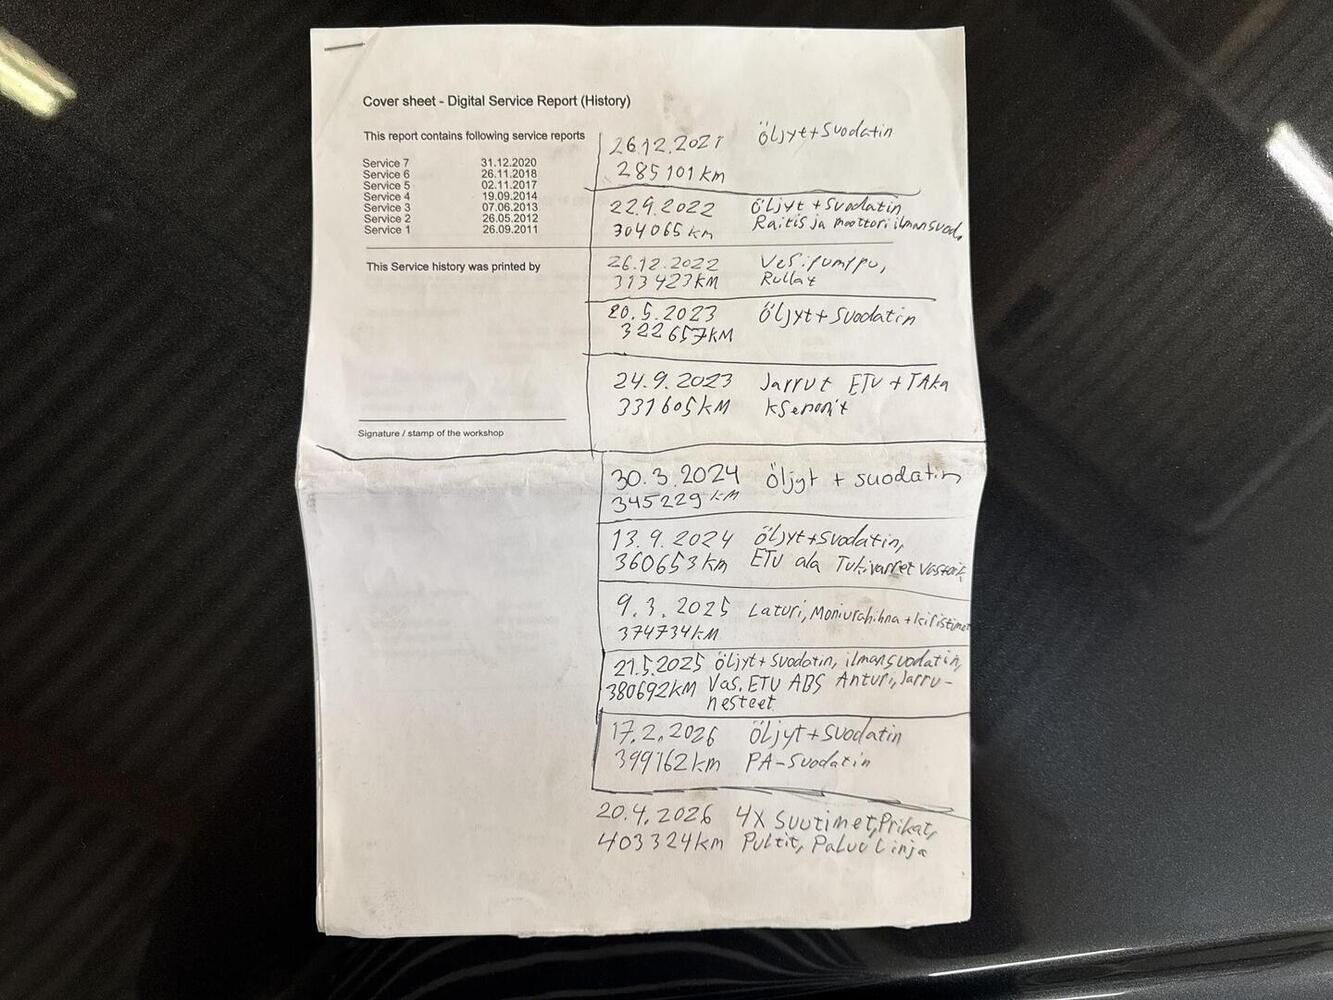 Cover sheet - Digital Service Report (History)
This report contains following service reports
Service 7 31.12.2020
Service 6 26.11.2018
Service 5 02.11.2017
Service 4 19.09.2014
Service 3 07.06.2013
Service 2 26.05.2012
Service 1 26.09.2011
This Service history was printed by
Signature / stamp of the workshop
26.12.2021 Öljyt+Suodatin
285101 km
22.9.2022 Öljyt + Suodatin
304065 km Raitis ja moottori ilmansuod.
26.12.2022 Vesipumppu,
313423KM Rullat
20.5.2023 Öljyt + Suodatin
322657KM
24.9.2023 Jarrut ETU + TAka
331605KM ksenonit
30.3.2024 Öljyt + suodatin
345229 KM
13.9.2024 Öljyt+Suodatin,
360653km ETU ala Tukivarret
9.3.2025 Laturi, Moniurahihna + kiristimet
374734KM
21.5.2025 Öljyt+Suodatin, ilmansuodatin,
380692KM Vas. ETU ABS Anturi, Jarru-
nesteet
17.2.2026 Öljyt+Suodatin
399162km PA-Suodatin
20.4.2026 4X Suutimet, Prikat,
403324km Pultit, Paluu Linja